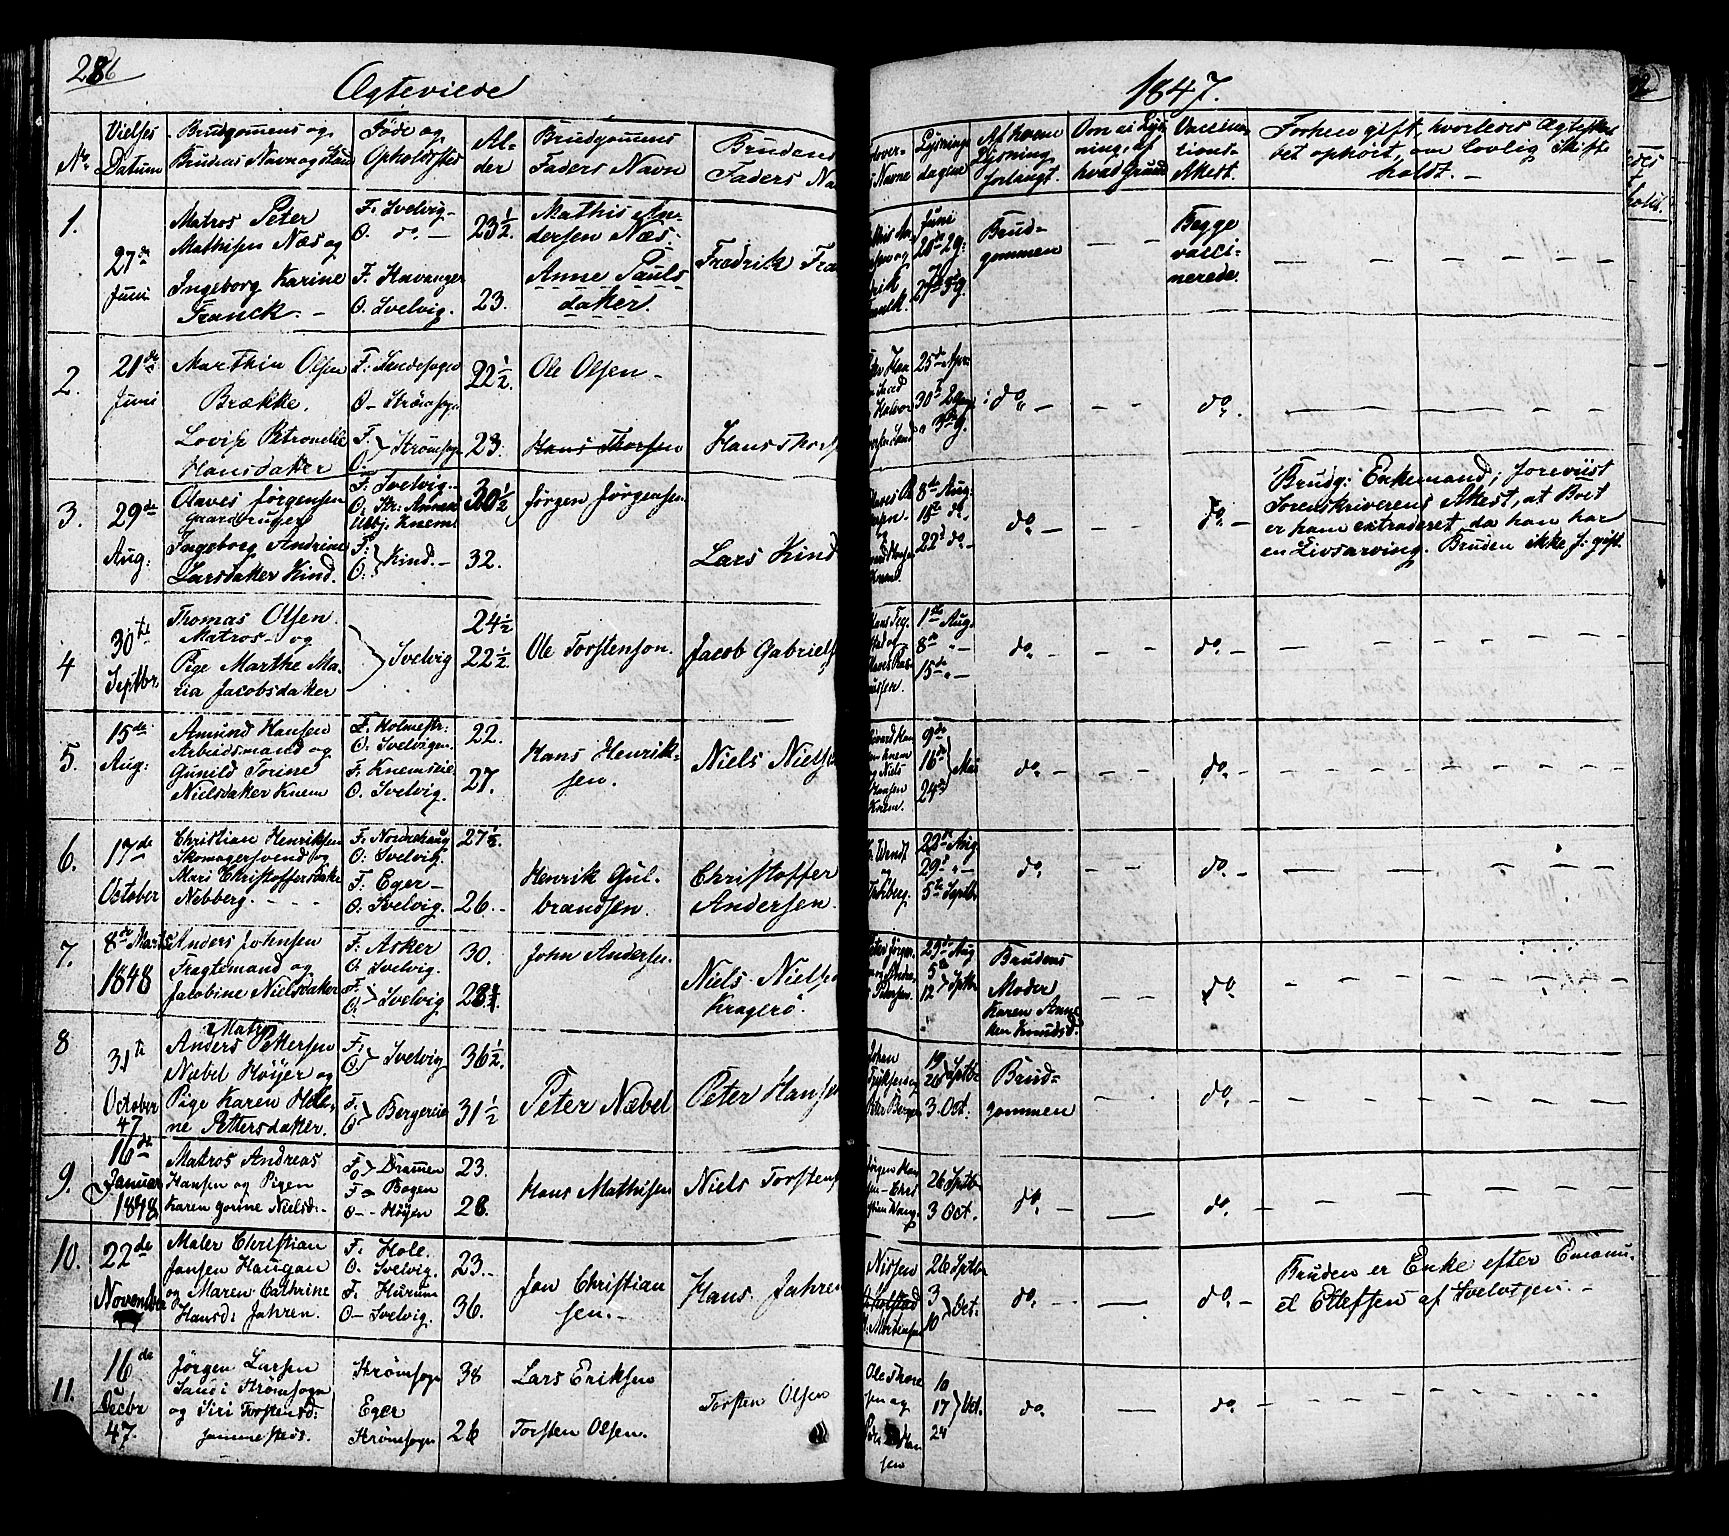 286
Ægteviede
1847.
No.
Vielses Datum
Brudgommens og Brudens Navn og Stand
Føde og Opholdssted
Alder
Brudgommens Faders Navn
Brudens Faders Na
Lysnings dagene
Af hvem Lysning forlangt.
Om ei Lysning, af hvad Grund
Vaccinations Attest.
Forhen gift, hvorledes Ægteskabet ophört, om lovlig Skifte holdt. —
1.
27de Juni
Matros Peter
Mathisen Næs og
Ingeborg Karine
Franck. —
F: Svelvig —
O. do. —
F. Havanger
O. Svelvig.
23½.
23.
Mathis An-
dersen Næs.
Anne Pauls
daker.
Fredrik Fra
Juni
20de 2g:
27de 3g.
Brud-
gommen
Begge
vacci-
nerede.
2.
21de Juni
Marthin Olsen
Brække.
Lovise Petronelle
Hansdaker
O— Strömsogn
F. O. } Strömsogn
22½.
23.
Ole Olsen —
Hans Thorsen
Hans Thors
25de Apr.
30te
do. —
do. —
3.
29de Aug:
Olaves Jörgensen
Ingeborg Andrine
Larsdaker Kind.
F: Svelvig. —
F: O: } Kind. —
30½
32.
Jörgen Jörgensen
Lars Kind
8de Aug:
15de do.
22de do. —
do. —
do. —
Brudg: Enkemand; foreviist
Sorenskriverens Attest, at Boet
er ham extraderet, da han har
en Livsarving. Bruden ikke f: gift.
4
30te Septbr
Thomas Olsen.
Matros — og
Pige Marthe Ma-
ria Jacobsdaker
} Svelvig
24½
22½
Ole Torstenson.
Jacob Gabriels
1ste Aug.
8de " —
15de " —
do. —
do. —
5.
15de Aug:
Amund Hansen
Arbeidsmand og
Gunild Torine
Nielsdaker Knem
F. Holmestr:
O. Svelvigen.
F. Knemseie
O. Svelvig.
22.
27.
Hans Henrik-
sen.
Niels Nielse
9de
16de } Mai
24de
do. —
do. —
6.
17de October
Christian Henriksen
Skomagersvend og
Mari Christoffersdaker
Nebberg. — — —
F. Norderhaug
O: Svelvig.
F: Eger —
O: Svelvig.
27½.
26. —
Henrik Gul-
brandsen.
Christoffer
Andersen.
22de Aug
29de " —
5te Septbr
do. —
do. —
7.
8de Marts 1848
Anders Johnsen
Fragtemand og
Jacobine Nielsdaker
F: Asker
O. Svelvig.
F. O. } Svelvig
30.
John Andersen.
Niels Nielse
Kragerö.
29de Aug
5te
12 } Sptbr
Brudens
Moder
Karen Anne
ken Knudsd.
do
8
31te October 47
Matros
Anders Pettersen
Næbel Höyer og
Pige Karen Hele-
ne Pettersdaker.
F. O. } Svelvig
F. O } Bergereie
36½.
31½
Peter Næbel
Peter Hanse
19
26 } Sptbr
3. Oct.
Brud-
gommen
do. —
9.
16de Januar 1848
Matros Andreas
Hansen og Pigen
Karen Gorine Nielsd. —
F O } Drammen
F — Bogen
O — Höyen
23.
28.
Hans Mathisen
Niels Torstens
26 Sptbr
3 Oct.
do. —
do. —
10.
22de November
Maler Christian
Jansen Haugan
og Maren Cathrine
Hansd: Jahren.
F. Hole.
O. Svelvig.
F. Hurum
O — Svelvig.
23. —
36.
Jan Christian
sen. —
Hans Jahren
Nissen
26 Sptbr
3
10 } Oct.
do. —
do. —
Bruden er Enke efter Emanu-
el Ellefsen af Svelvigen. —
11.
16de Decbr 47.
Jörgen Larsen
Sand i Strömsogn
og Siri Torstensd:
Strömsogn
Eger
Strömsogn
38
26
Lars Eriksen
Torsten Olsen.
Torsten Olsen
10
17 } Oct.
24
do.
do. —